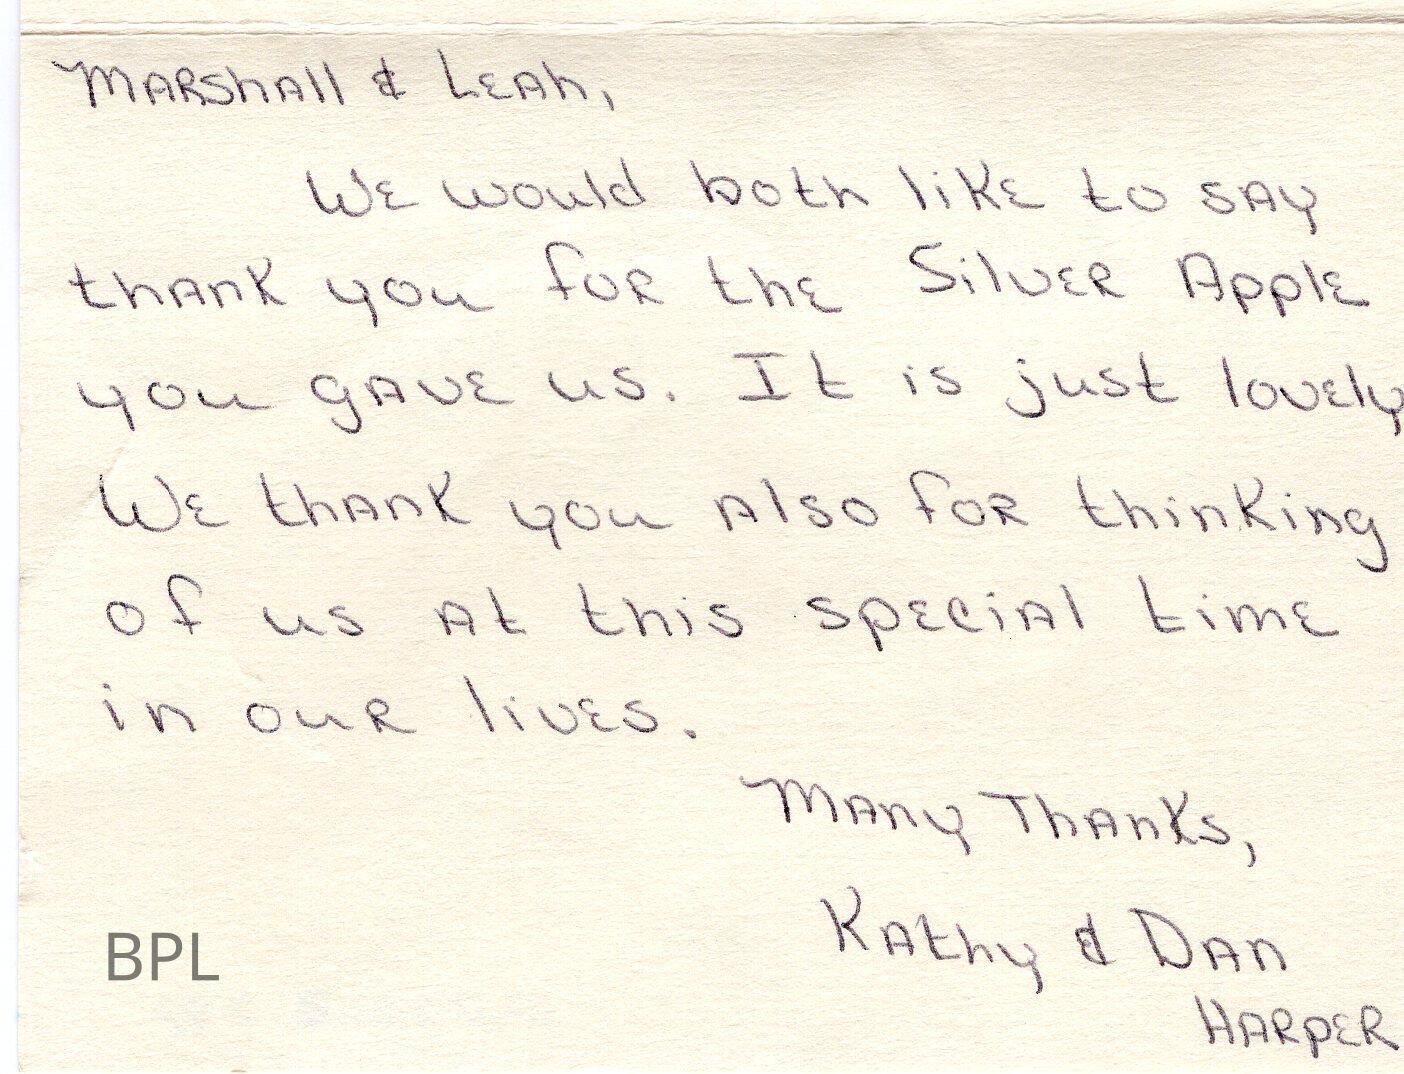 Marshall & Leah,
We would both like to say
thank you for the Silver Apple
you gave us. It is just lovely
We thank you also for thinking
of us at this special time
in our lives.
Many Thanks,
Kathy & Dan
Harper
BPL